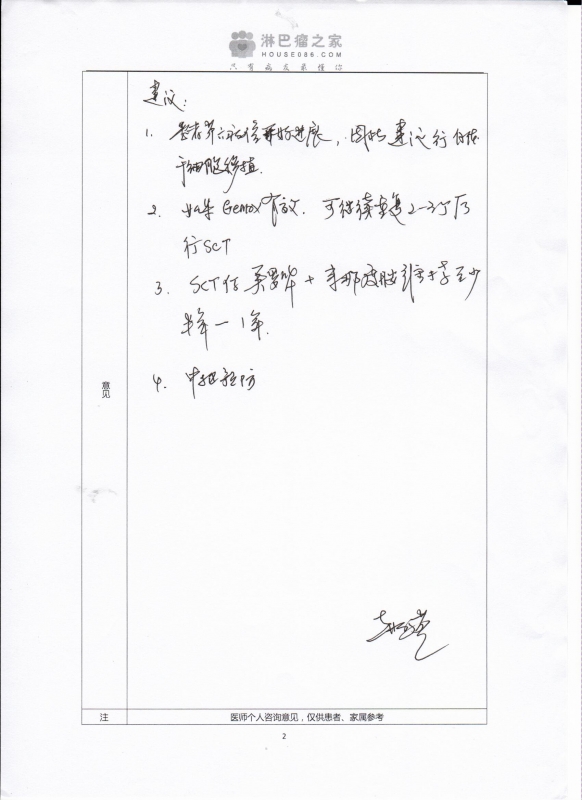 淋巴瘤之家
HOUSE086.COM
只有病友最懂你
建议：
1. 患者第六次后开始进展，因此建议行自体
干细胞移植.
2. 如果Gemox有效. 可继续重复2-3个后
行SCT
3. SCT后 + 来那度胺维持至少
半年一1年.
4. 中枢预防
意见
注
医师个人咨询意见，仅供患者、家属参考
2